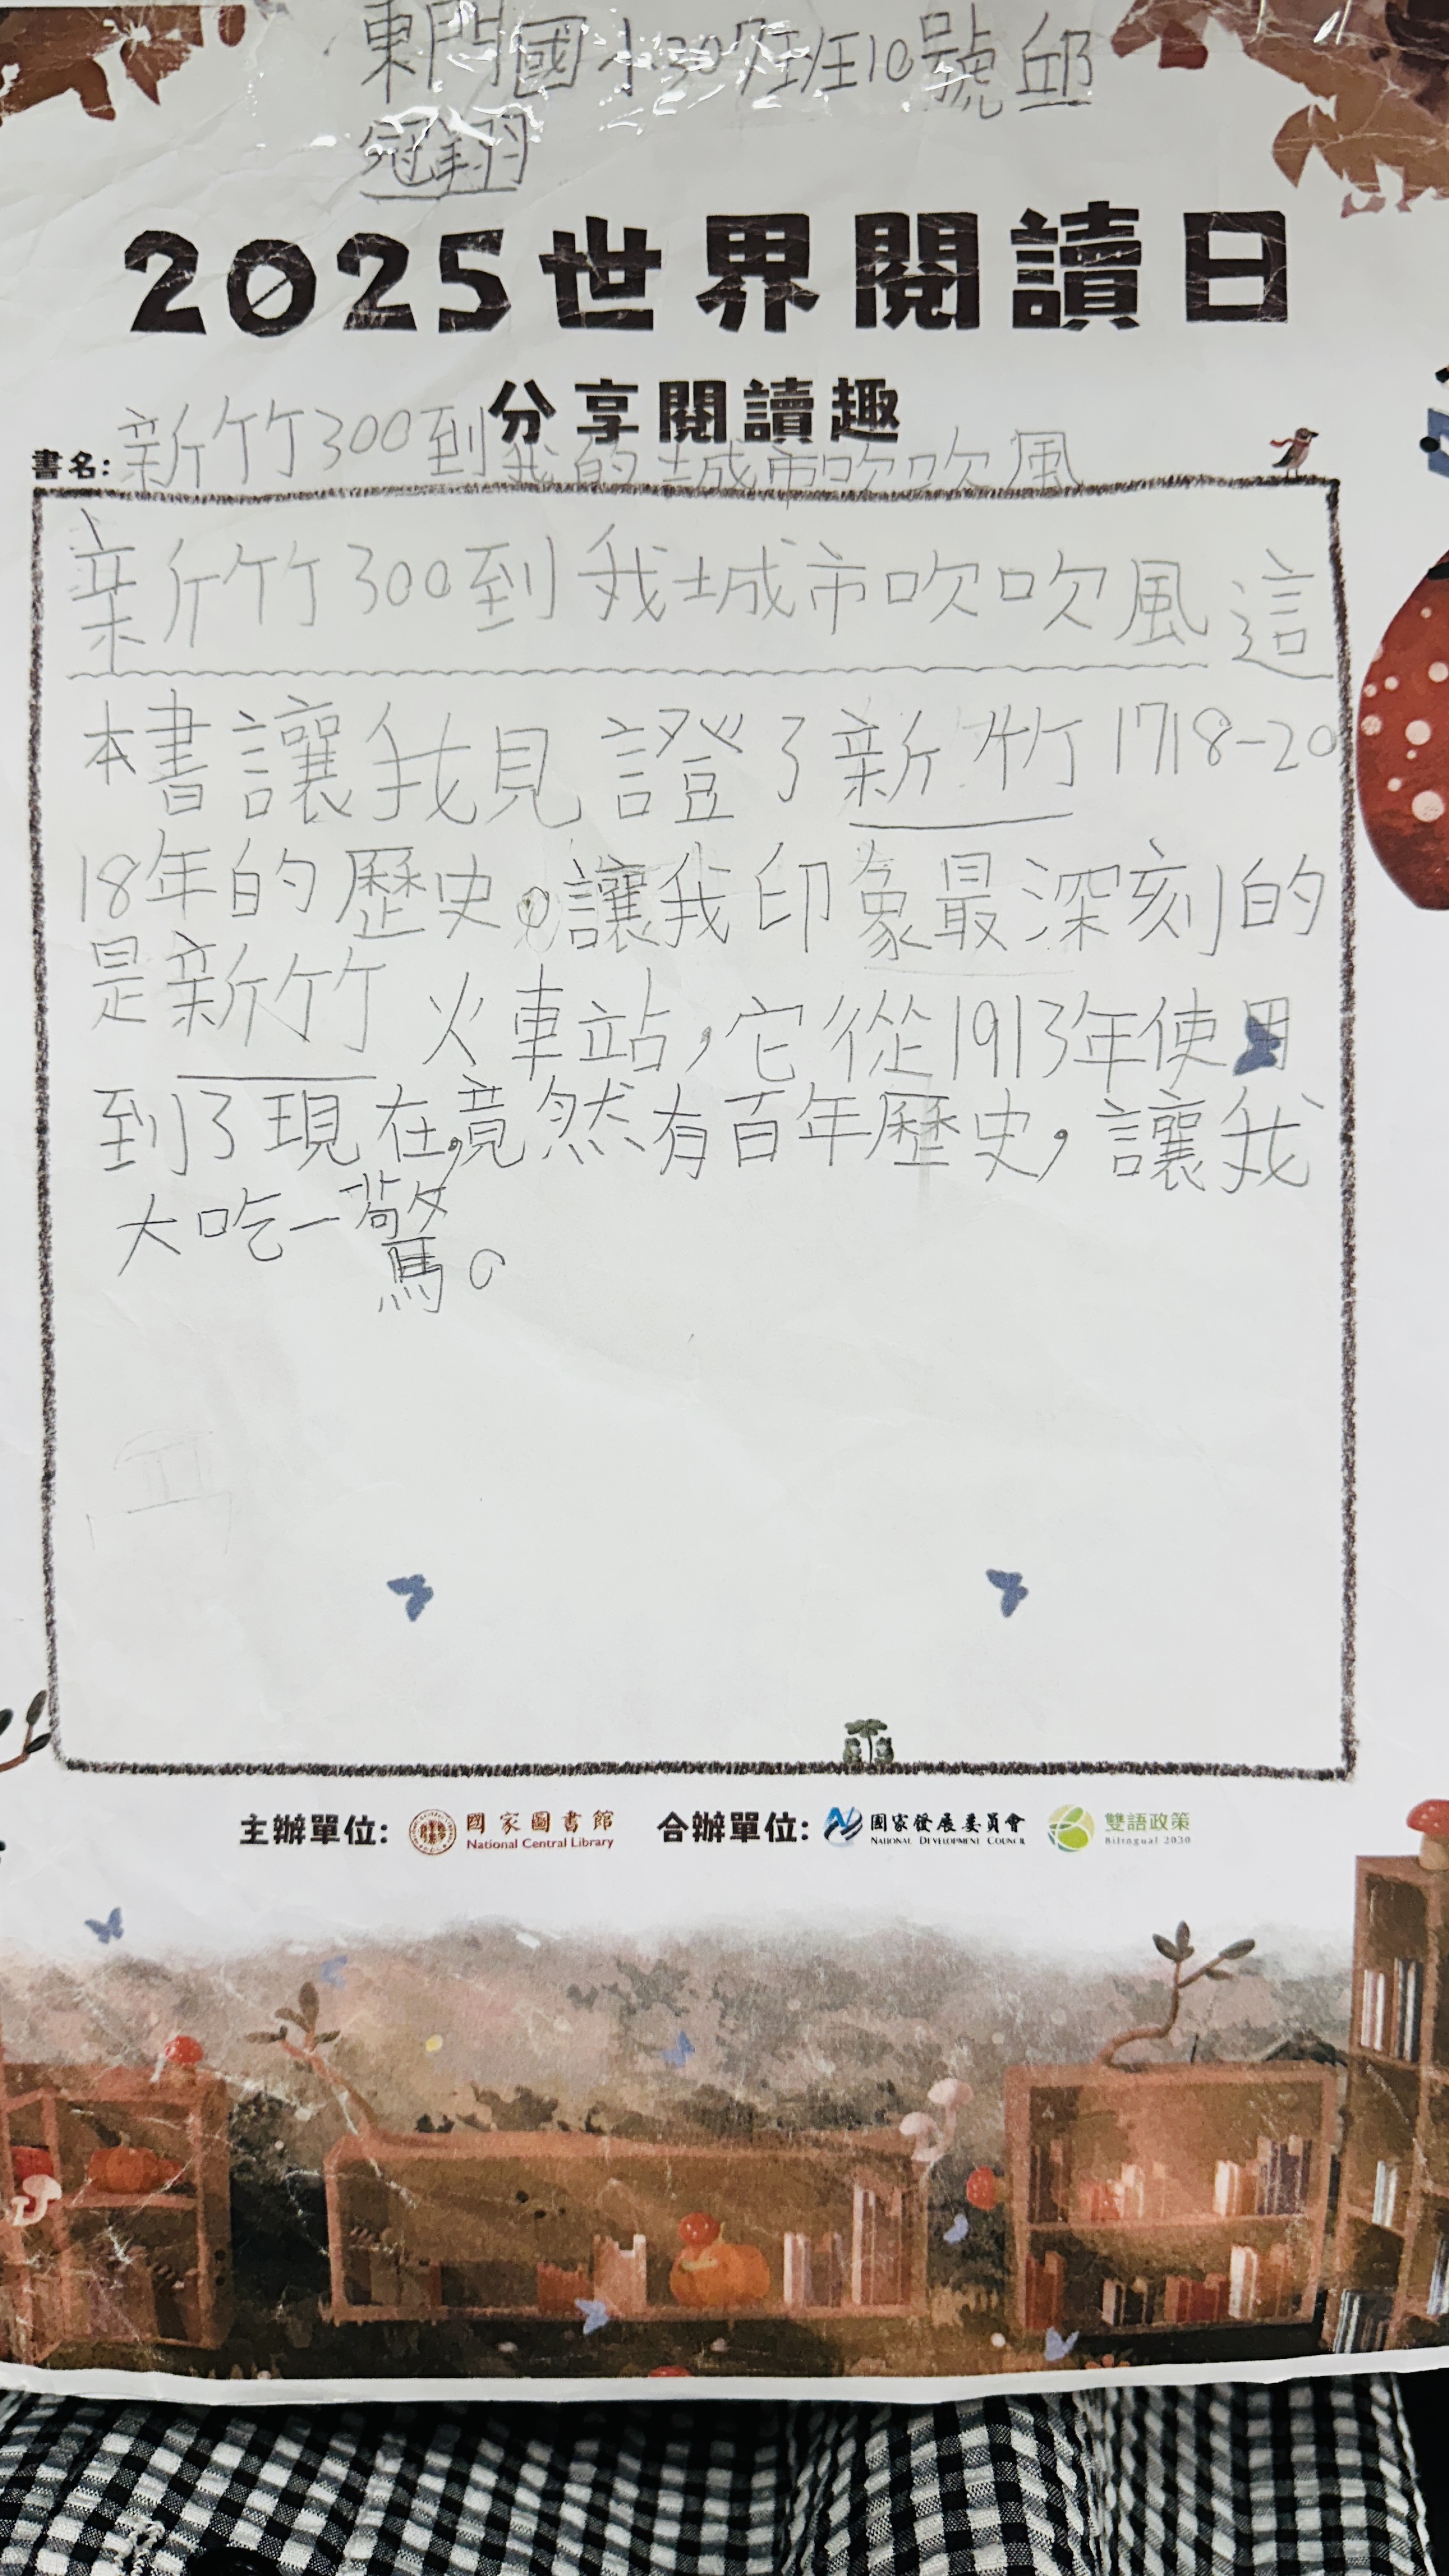 東門國小307班班10號邱
冠翔
2025世界閱讀日
分享閱讀趣
書名:新竹300到我的城市吹吹風
新竹300到我城市吹吹風這
本書讓我見證了新竹1718-20
18年的歷史。讓我印象最深刻的
是新竹火車站,它從1913年使用
到了現在,竟然有百年歷史,讓我
大吃一驚。
主辦單位: 國家圖書館 National Central Library 合辦單位: 國家發展委員會 NATIONAL DEVELOPMENT COUNCIL 雙語政策 Bilingual 2030